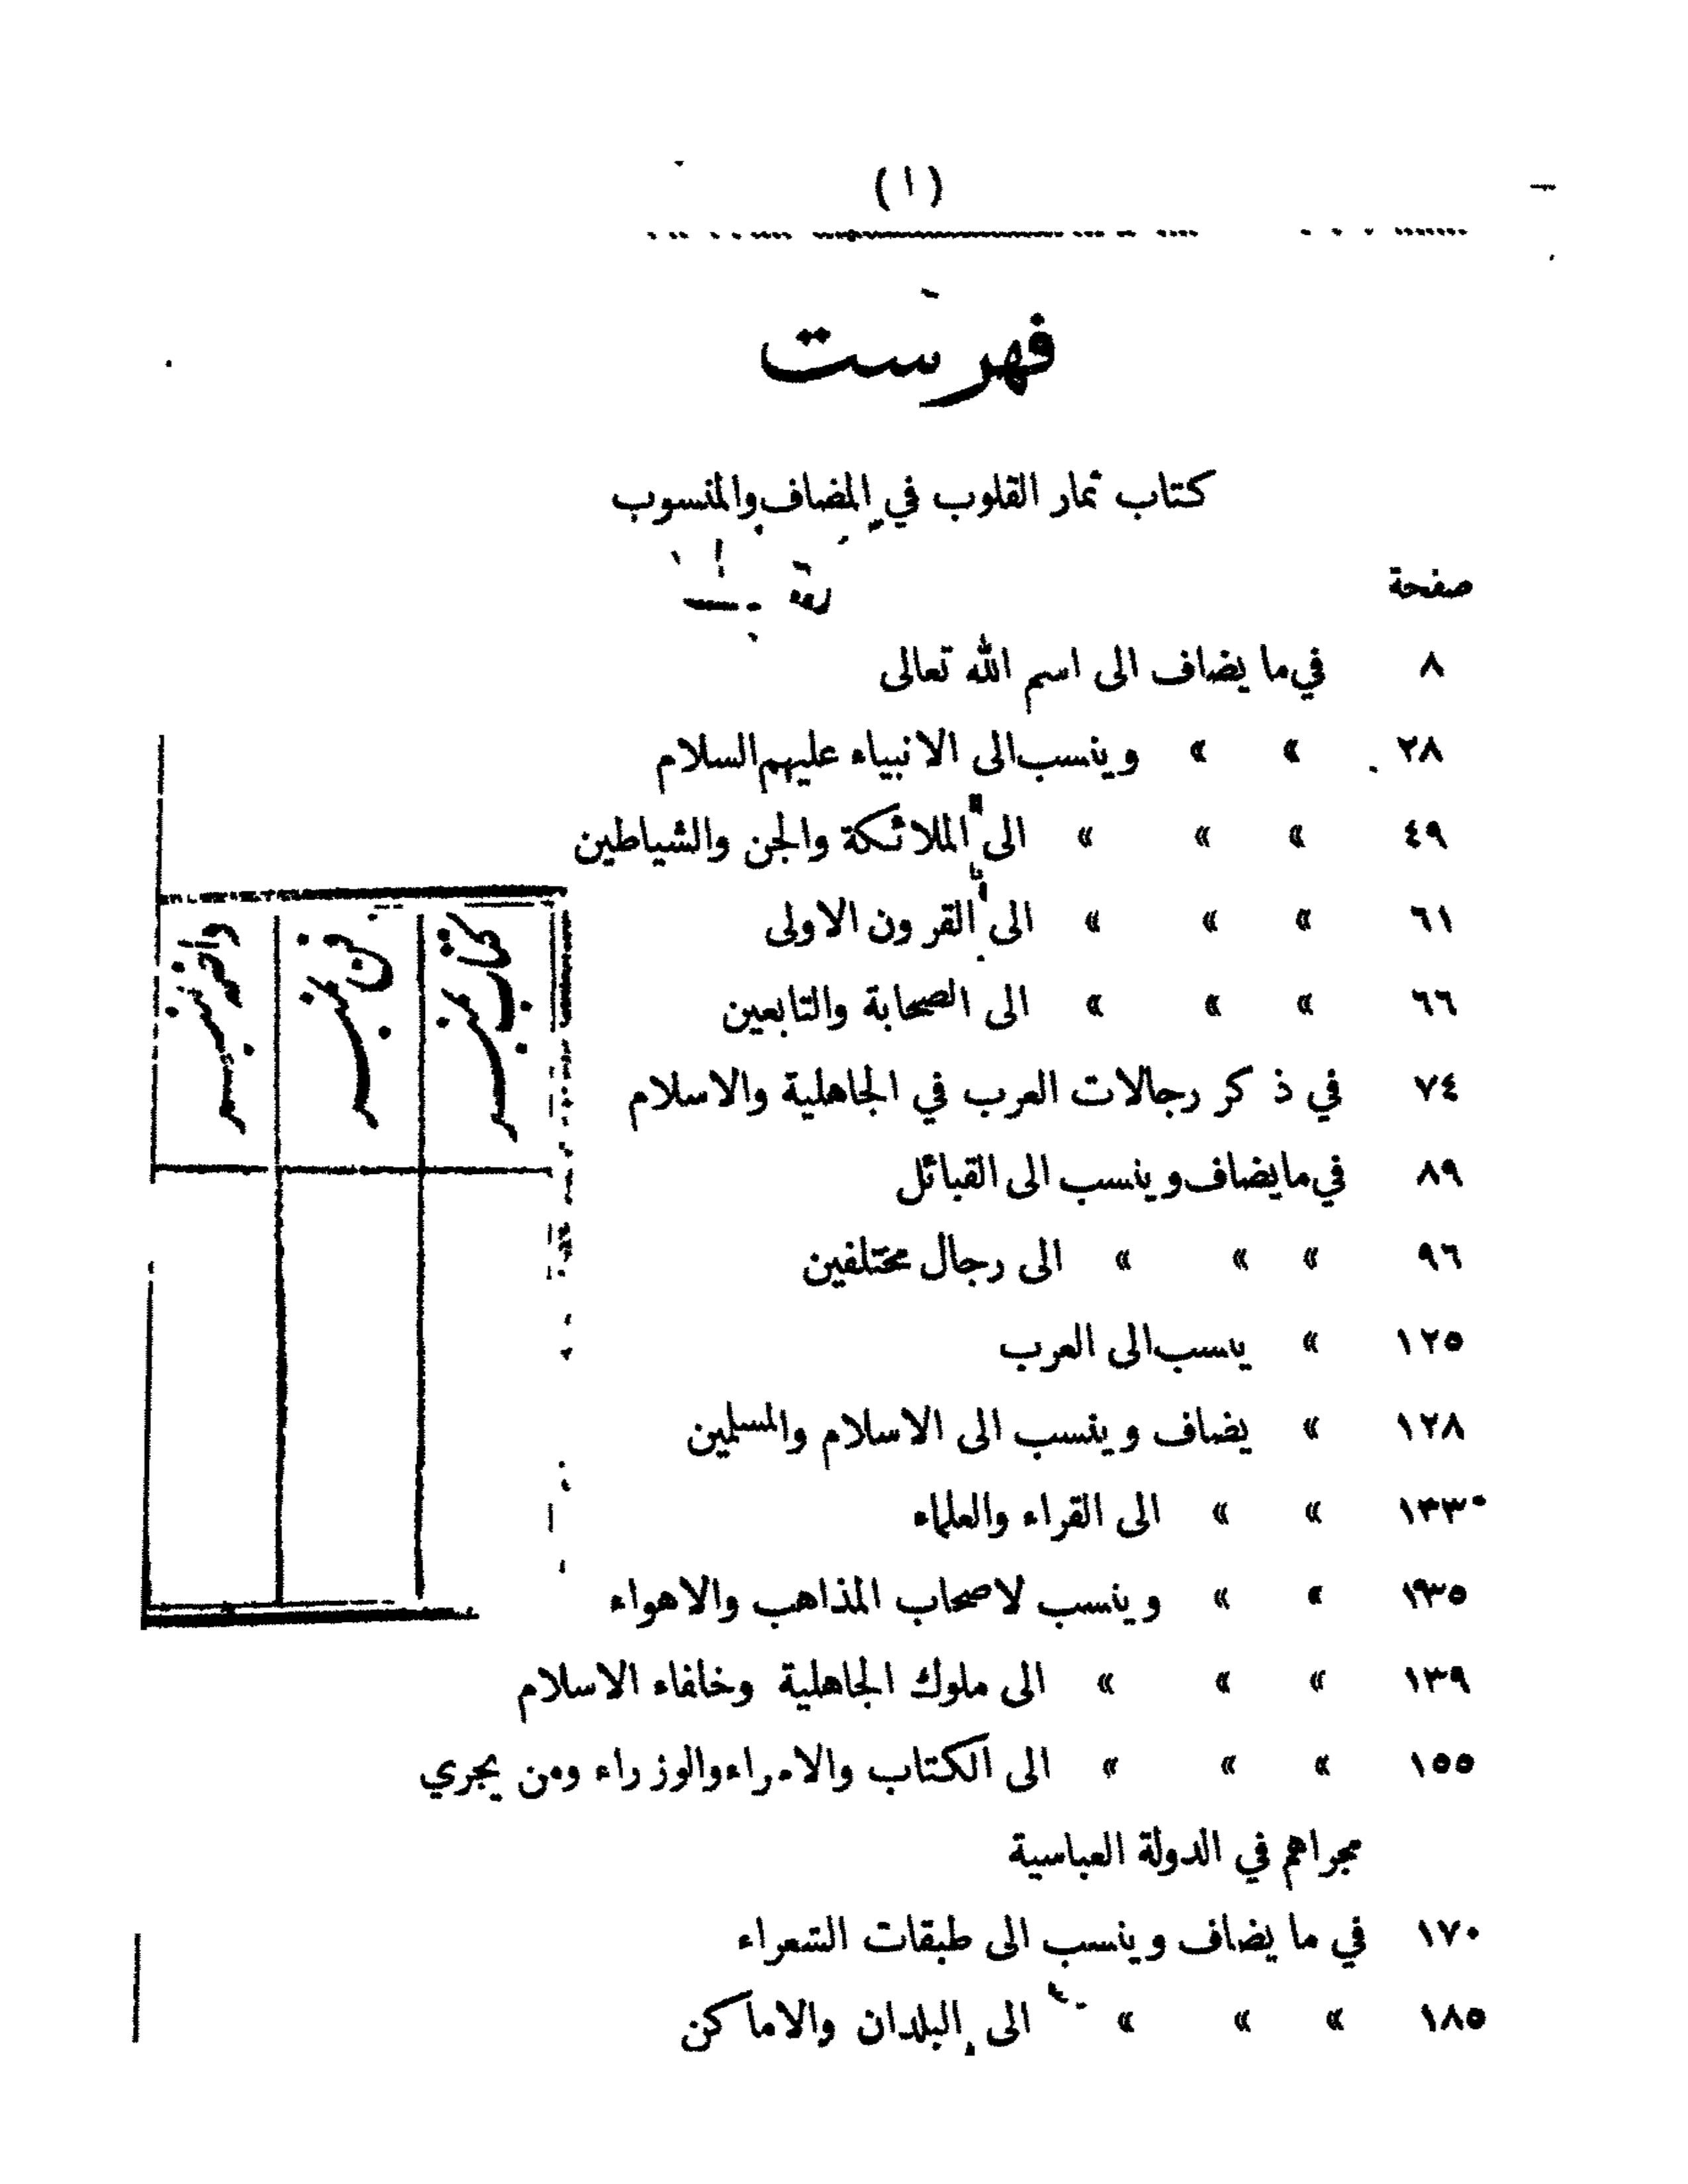 (١)
فهرست
كتاب ثمار القلوب في المضاف والمنسوب
صفحة
٨ في ما يضاف الى اسم الله تعالى
٢٨ » » وينسب الى الانبياء عليهم السلام
٤٩ » » » الى الملائكة والجن والشياطين
٦١ » » » الى القرون الاولى
٦٦ » » » الى الصحابة والتابعين
٧٤ في ذكر رجالات العرب في الجاهلية والاسلام
٨٩ في ما يضاف وينسب الى القبائل
٩٦ » » » الى رجال مختلفين
١٢٥ » ينسب الى العرب
١٢٨ » يضاف وينسب الى الاسلام والمسلمين
١٣٣ » » الى القراء والعلماء
١٣٥ » » وينسب لاصحاب المذاهب والاهواء
١٣٩ » » » الى ملوك الجاهلية وخلفاء الاسلام
١٥٥ » » » الى الكتاب والامراء والوزراء ومن يجري
مجراهم في الدولة العباسية
١٧٠ في ما يضاف وينسب الى طبقات الشعراء
١٨٥ » » » الى البلدان والاماكن
كتاب نمبر
فن نمبر